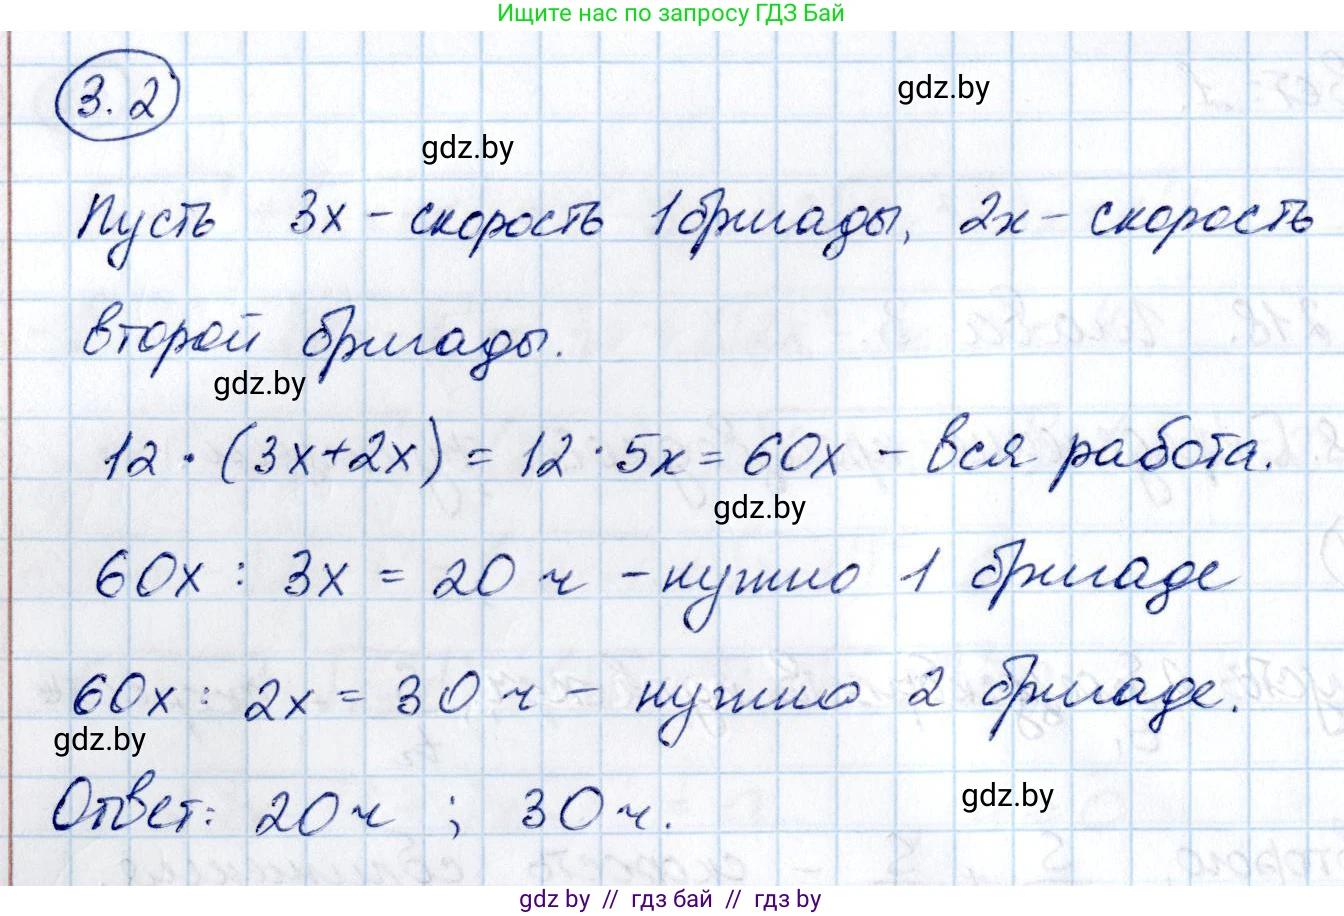 Ищите нас по запросу ГДЗ Бай
3.2
gdz.by
gdz.by
Пусть 3х – скорость 1 бригады, 2х – скорость
второй бригады.
gdz.by
12 · (3х+2х) = 12 · 5х = 60х – вся работа.
gdz.by
60х : 3х = 20 ч – нужно 1 бригаде
60х : 2х = 30 ч – нужно 2 бригаде.
gdz.by
Ответ: 20 ч ; 30 ч.
gdz.by
gdz by // гдз бай // гдз by